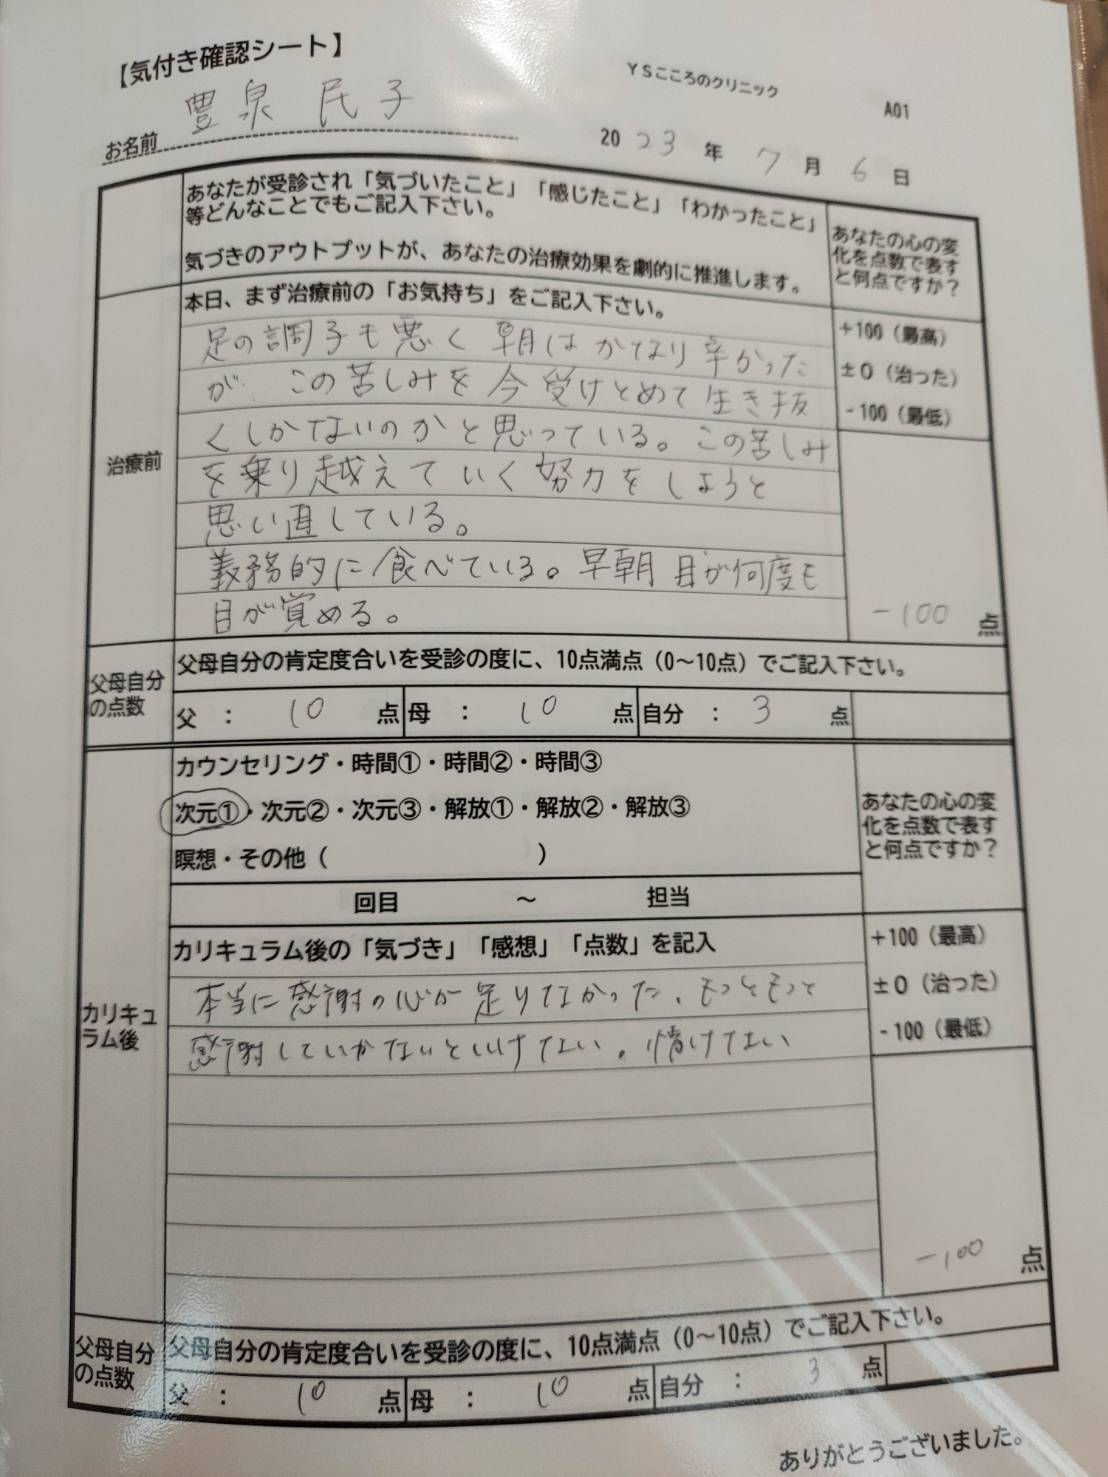 【気付き確認シート】
YSこころのクリニック
A01
お名前 豊泉 民子
2023年 7月 6日
あなたが受診され「気づいたこと」「感じたこと」「わかったこと」
等どんなことでもご記入下さい。
気づきのアウトプットが、あなたの治療効果を劇的に推進します。
あなたの心の変
化を点数で表す
と何点ですか？
治療前
本日、まず治療前の「お気持ち」をご記入下さい。
足の調子も悪く 朝は かなり 辛かった
が、この苦しみを 今 受けとめて 生き抜
くしかないのかと思っている。この苦しみ
を乗り越えて いく 努力を しようと
思い直している。
義務的に食べている。早朝 目が何度も
目が覚める。
+100（最高）
±0（治った）
-100（最低）
-100 点
父母自分
の点数
父母自分の肯定度合いを受診の度に、10点満点（0～10点）でご記入下さい。
父 ： 10 点 母 ： 10 点 自分 ： 3 点
カリキュ
ラム後
カウンセリング・時間①・時間②・時間③
次元①・次元②・次元③・解放①・解放②・解放③
瞑想・その他（ ）
回目 ～ 担当
あなたの心の変
化を点数で表す
と何点ですか？
カリキュラム後の「気づき」「感想」「点数」を記入
本当に感謝の心が足りなかった、もっともっと
感謝していかないといけない。情けない
+100（最高）
±0（治った）
-100（最低）
-100 点
父母自分
の点数
父母自分の肯定度合いを受診の度に、10点満点（0～10点）でご記入下さい。
父 ： 10 点 母 ： 10 点 自分 ： 3 点
ありがとうございました。